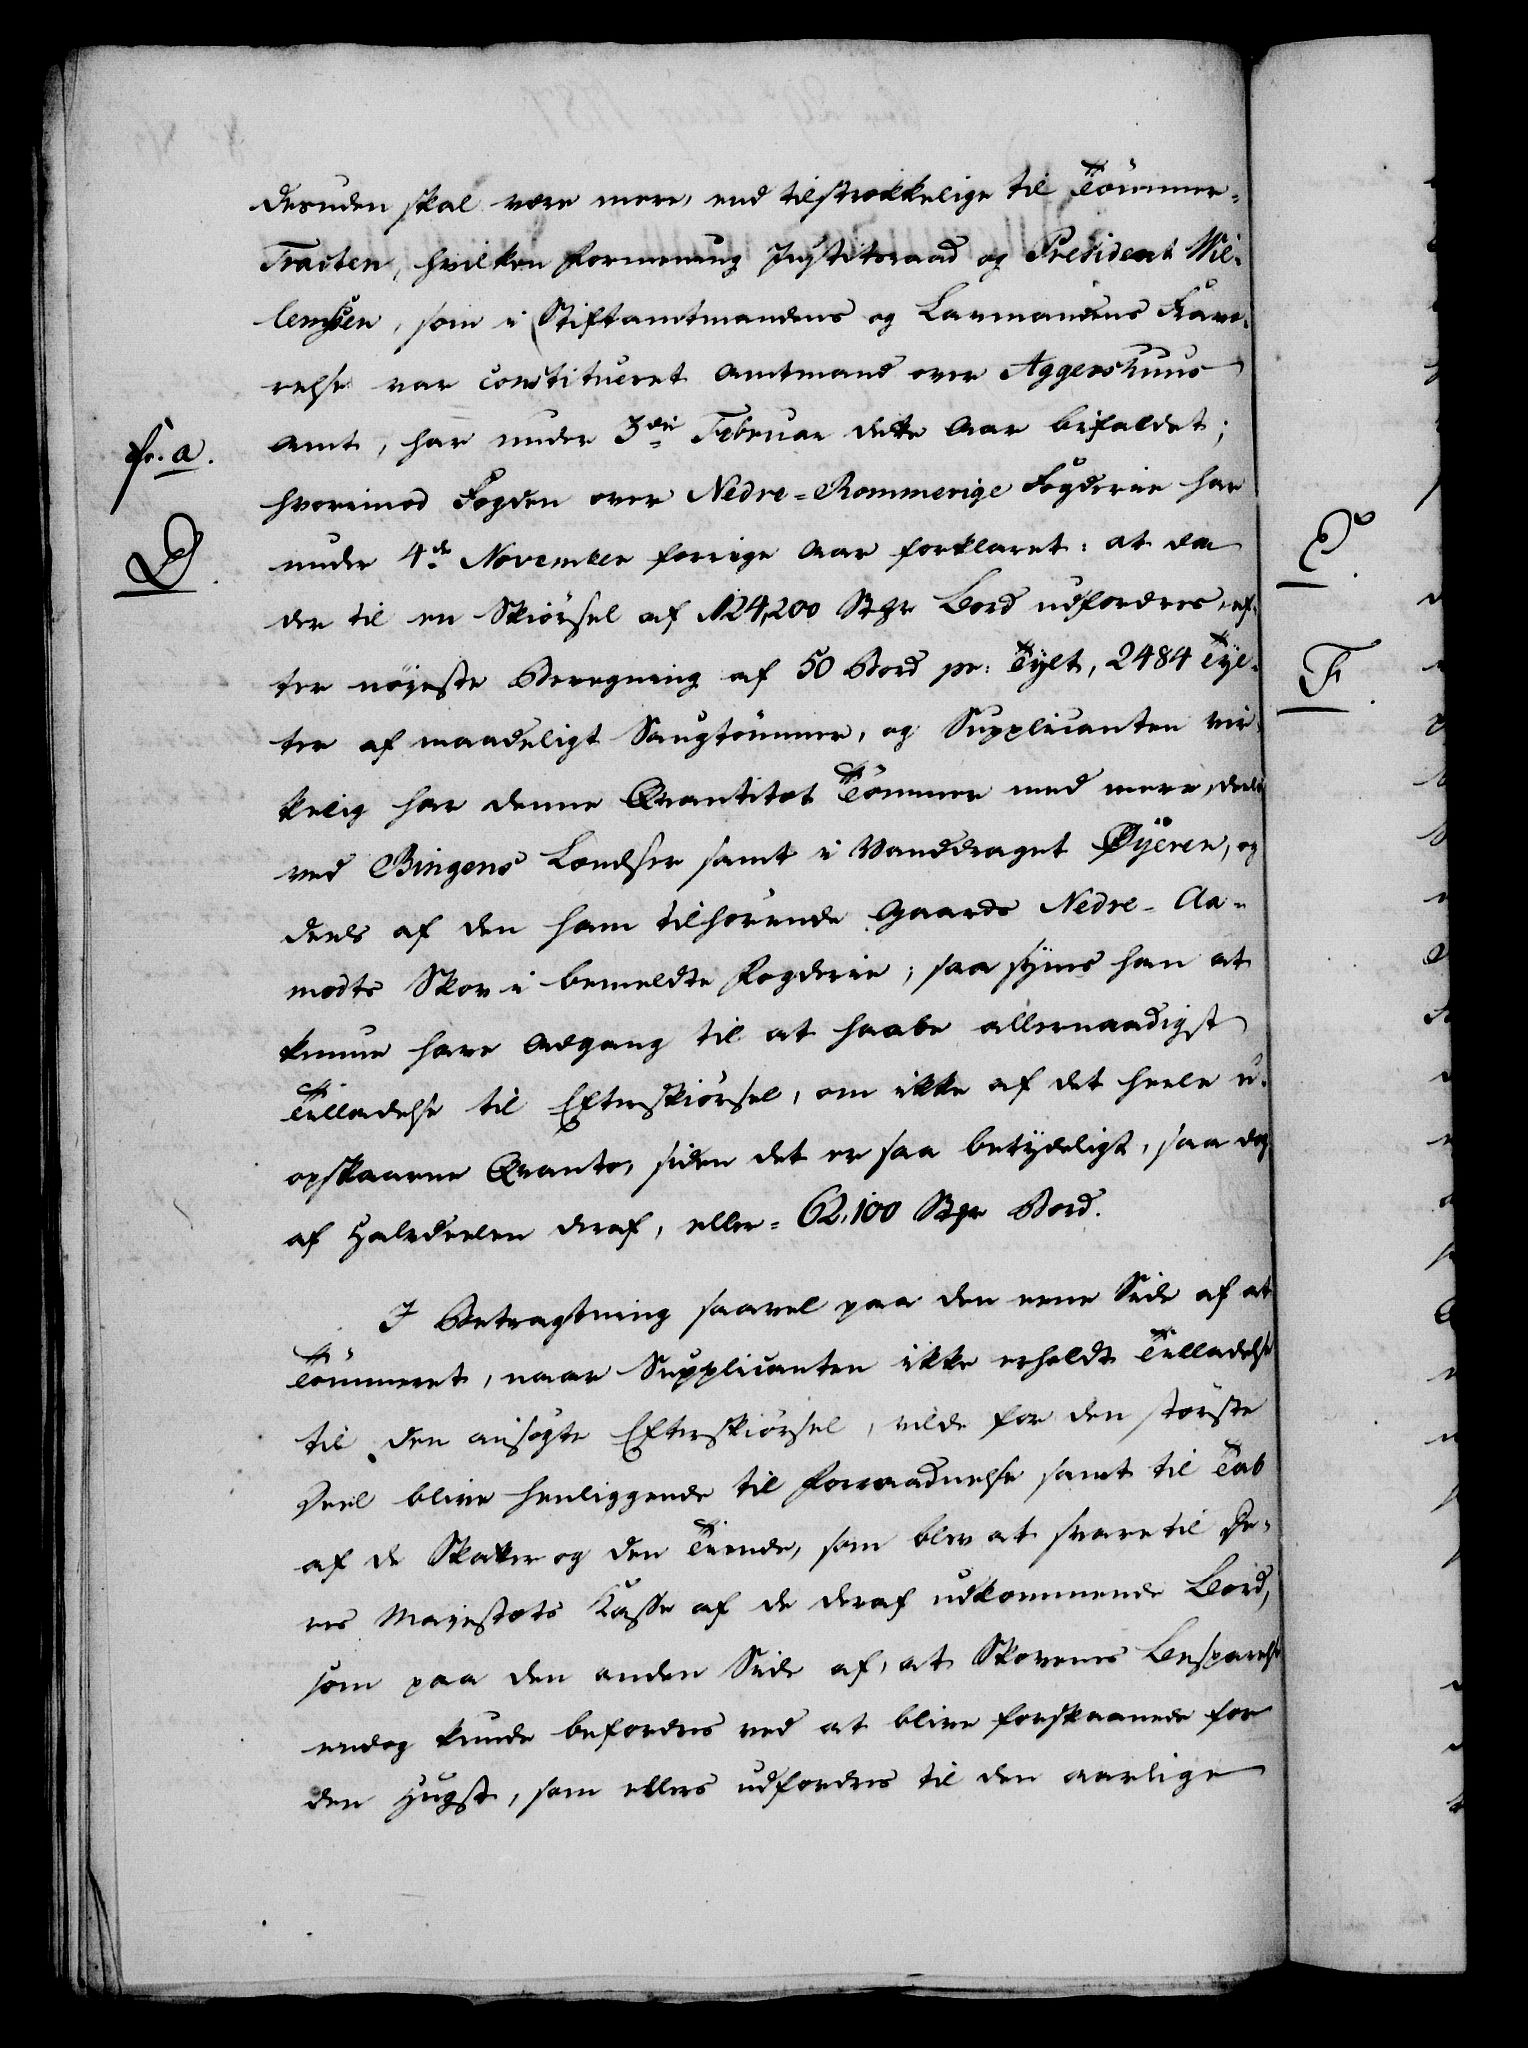 desuden skal være mere, end tilstrækkelige til Tömmer-
Tracten, hvilken Formening Justitsraad og President Wil-
lemsen, som i Stiftamtmandens og Laumandens Fravæ-
relse var constitueret Amtmand over Aggershuus
Amt, har under 3die Februar dette Aar bifaldet;
fr. a.
hvorimod Fogden over Nedre-Rommerige Fogderie har
under 4de November forrige Aar forklaret: at da
D.
der til en Skiørsel af 124,200 Stkr Bord udfordres, ef-
ter nøyeste Beregning af 50 Bord pr: Tylt, 2484 Tyl-
ter af maadeligt Saugtömmer, og Supplicanten vir-
kelig har denne Qvantitet Tömmer med mere, deels
ved Bingens Lændser samt i Vanddraget Øyeren, og
deels af den ham tilhørende Gaards Nedre-Aa-
modts Skov i bemeldte Fogderie; saa synes han at
kunne have Adgang til at haabe allernaadigst
Tilladelse til Efterskiørsel, om ikke af det heele u-
opskaarne Qvanto, siden det er saa betydeligt, saa dog
af Halvdeelen deraf, eller = 62,100 Stkr Bord.
I Betragtning saavel paa den eene Side af at
Tömmeret, naar Supplicanten ikke erholdt Tilladelse
til den ansøgte Efterskiørsel, vilde for den største
Deel blive henliggende til Forraadnelse samt til Tab
af de Skatter og den Tiende, som blev at svare til De-
res Majestæts Casse af de deraf udkommende Bord,
som paa den anden Side af, at Skovenes Besparelse
endog kunde befordres ved at blive forskaanede for
den Hugst, som ellers udfordres til den aarlige
E.
F.